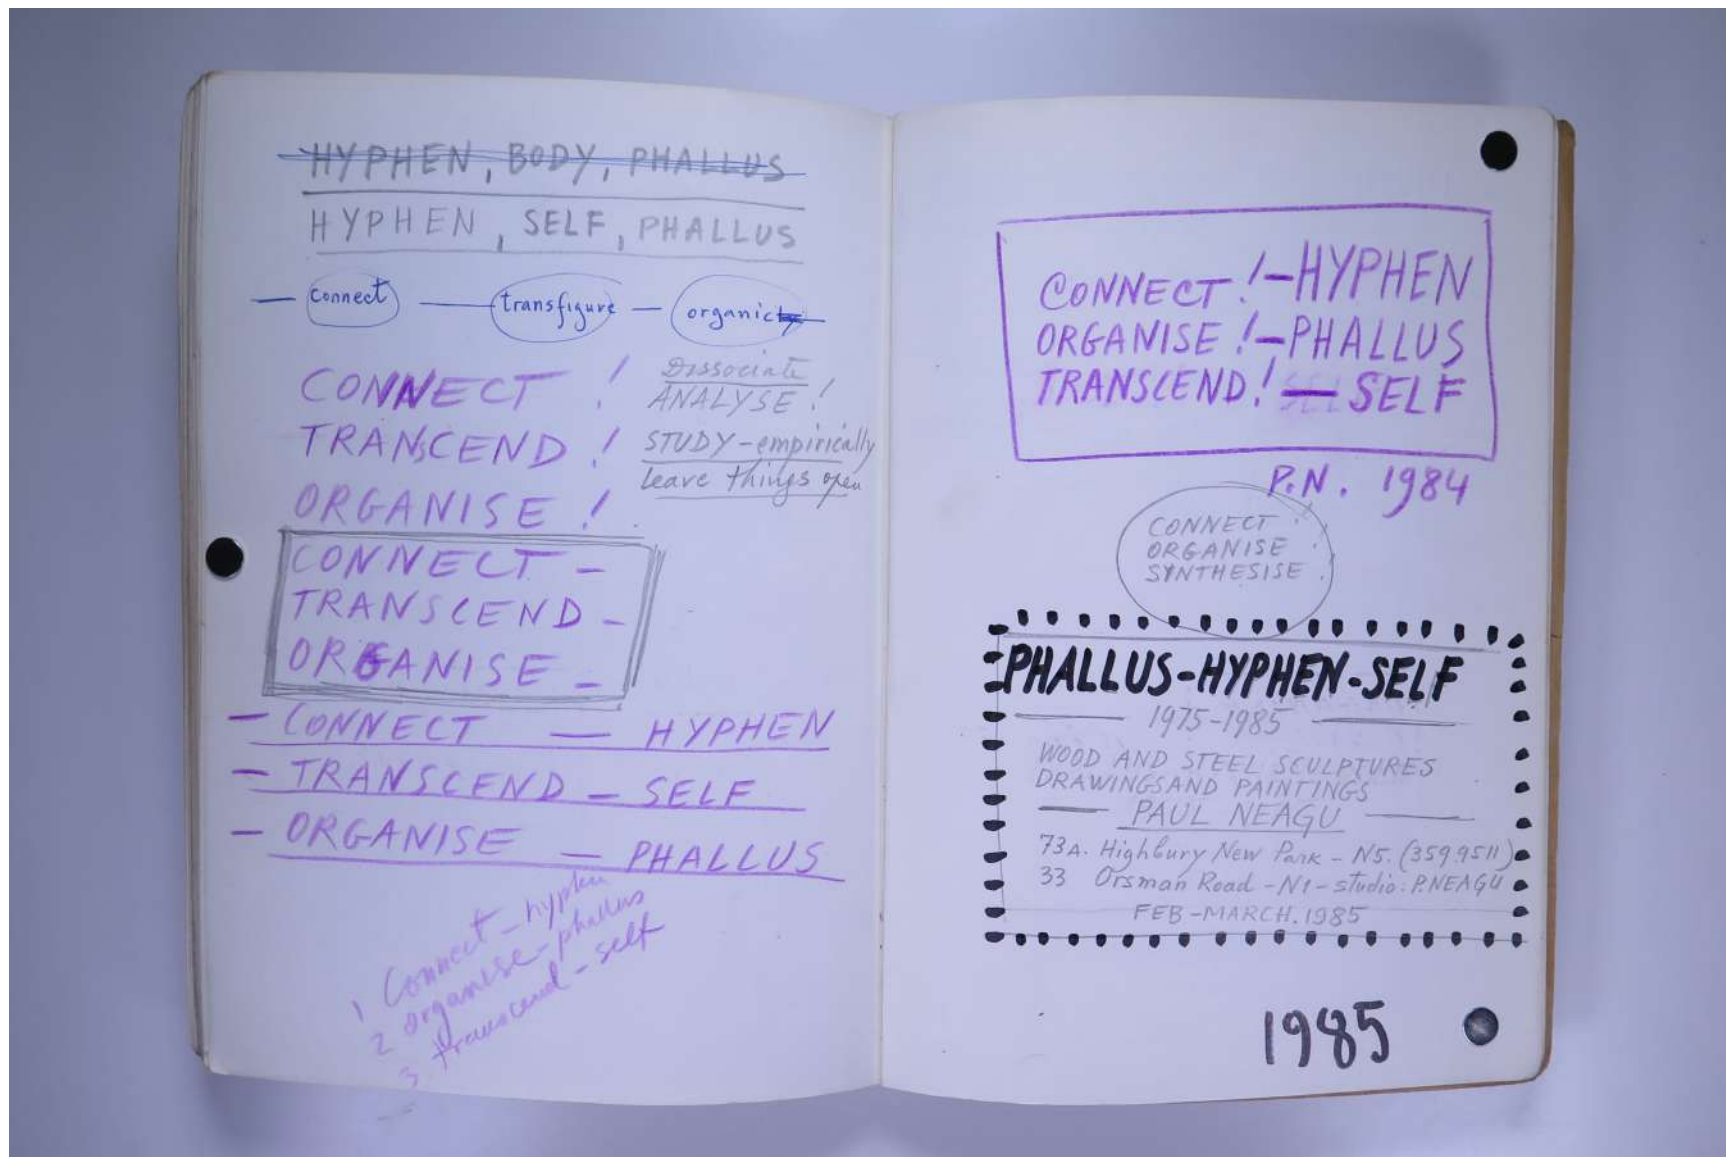 HYPHEN, BODY, PHALLUS
HYPHEN, SELF, PHALLUS
— connect — transfigure — organic
CONNECT !
TRANSCEND !
ORGANISE !
Dissociate
ANALYSE !
STUDY - empirically
leave things open
CONNECT –
TRANSCEND –
ORGANISE –
– CONNECT — HYPHEN
– TRANSCEND – SELF
– ORGANISE — PHALLUS
1 Connect – hyphen
2 organise – phallus
3 transcend – self
CONNECT ! – HYPHEN
ORGANISE ! – PHALLUS
TRANSCEND ! — SELF
P.N. 1984
CONNECT !
ORGANISE !
SYNTHESISE !
PHALLUS-HYPHEN-SELF
— 1975-1985 —
WOOD AND STEEL SCULPTURES
DRAWINGS AND PAINTINGS
— PAUL NEAGU —
73A. Highbury New Park - N5. (359.9511)
33 Orsman Road - N1 - studio: P.NEAGU
FEB-MARCH.1985
1985